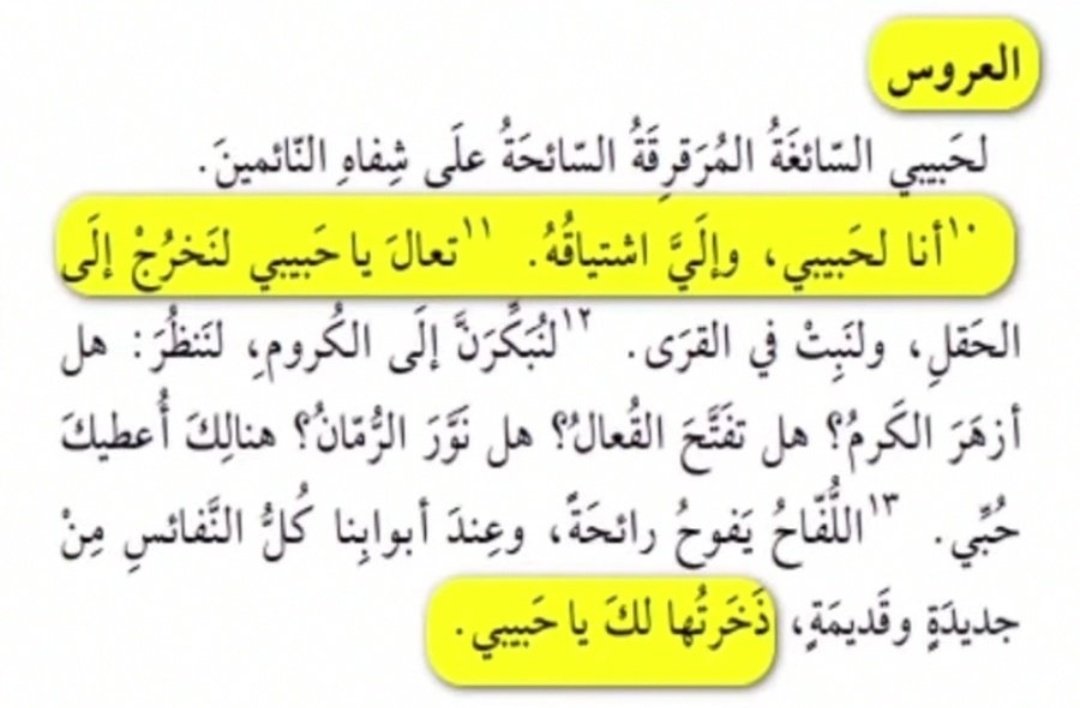 العروس
لحَبيبي السّائغَةُ المُرَقرِقَةُ السّائحَةُ علَى شِفاهِ النّائمينَ.
١٠أنا لحَبيبي، وإلَيَّ اشتياقُهُ. ١١تعالَ يا حَبيبي لنَخرُجْ إلَى
الحَقلِ، ولنَبِتْ في القرَى. ١٢لنُبَكِّرَنَّ إلَى الكُرومِ، لنَنظُرَ: هل
أزهَرَ الكَرمُ؟ هل تفَتَّحَ القُعالُ؟ هل نَوَّرَ الرُّمّانُ؟ هنالِكَ أُعطيكَ
حُبِّي. ١٣اللُّفّاحُ يَفوحُ رائحَةً، وعِندَ أبوابِنا كُلُّ النَّفائسِ مِنْ
جديدَةٍ وقَديمَةٍ، ذَخَرتُها لكَ يا حَبيبي.